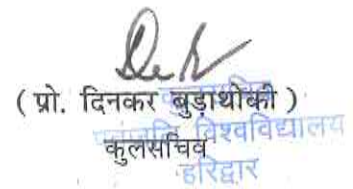 ( प्रो. दिनकर बुड़ाथोकी )
कुलसचिव
विश्वविद्यालय
हरिद्वार